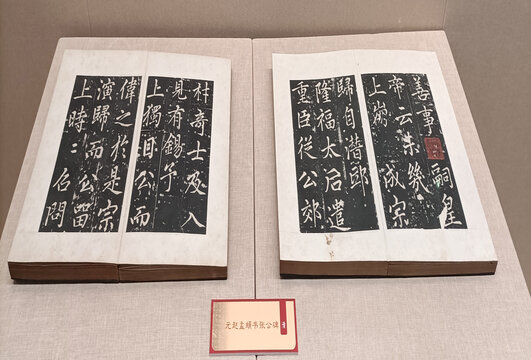 善事嗣皇
帝云未幾
上崩成宗
歸自潜邸
隆福太后遣
重臣従公郊
材奇士及入
見有錫予
上獨目公而
偉之於是宗
演歸而公留
上時〻召問
元赵孟頫书张公碑